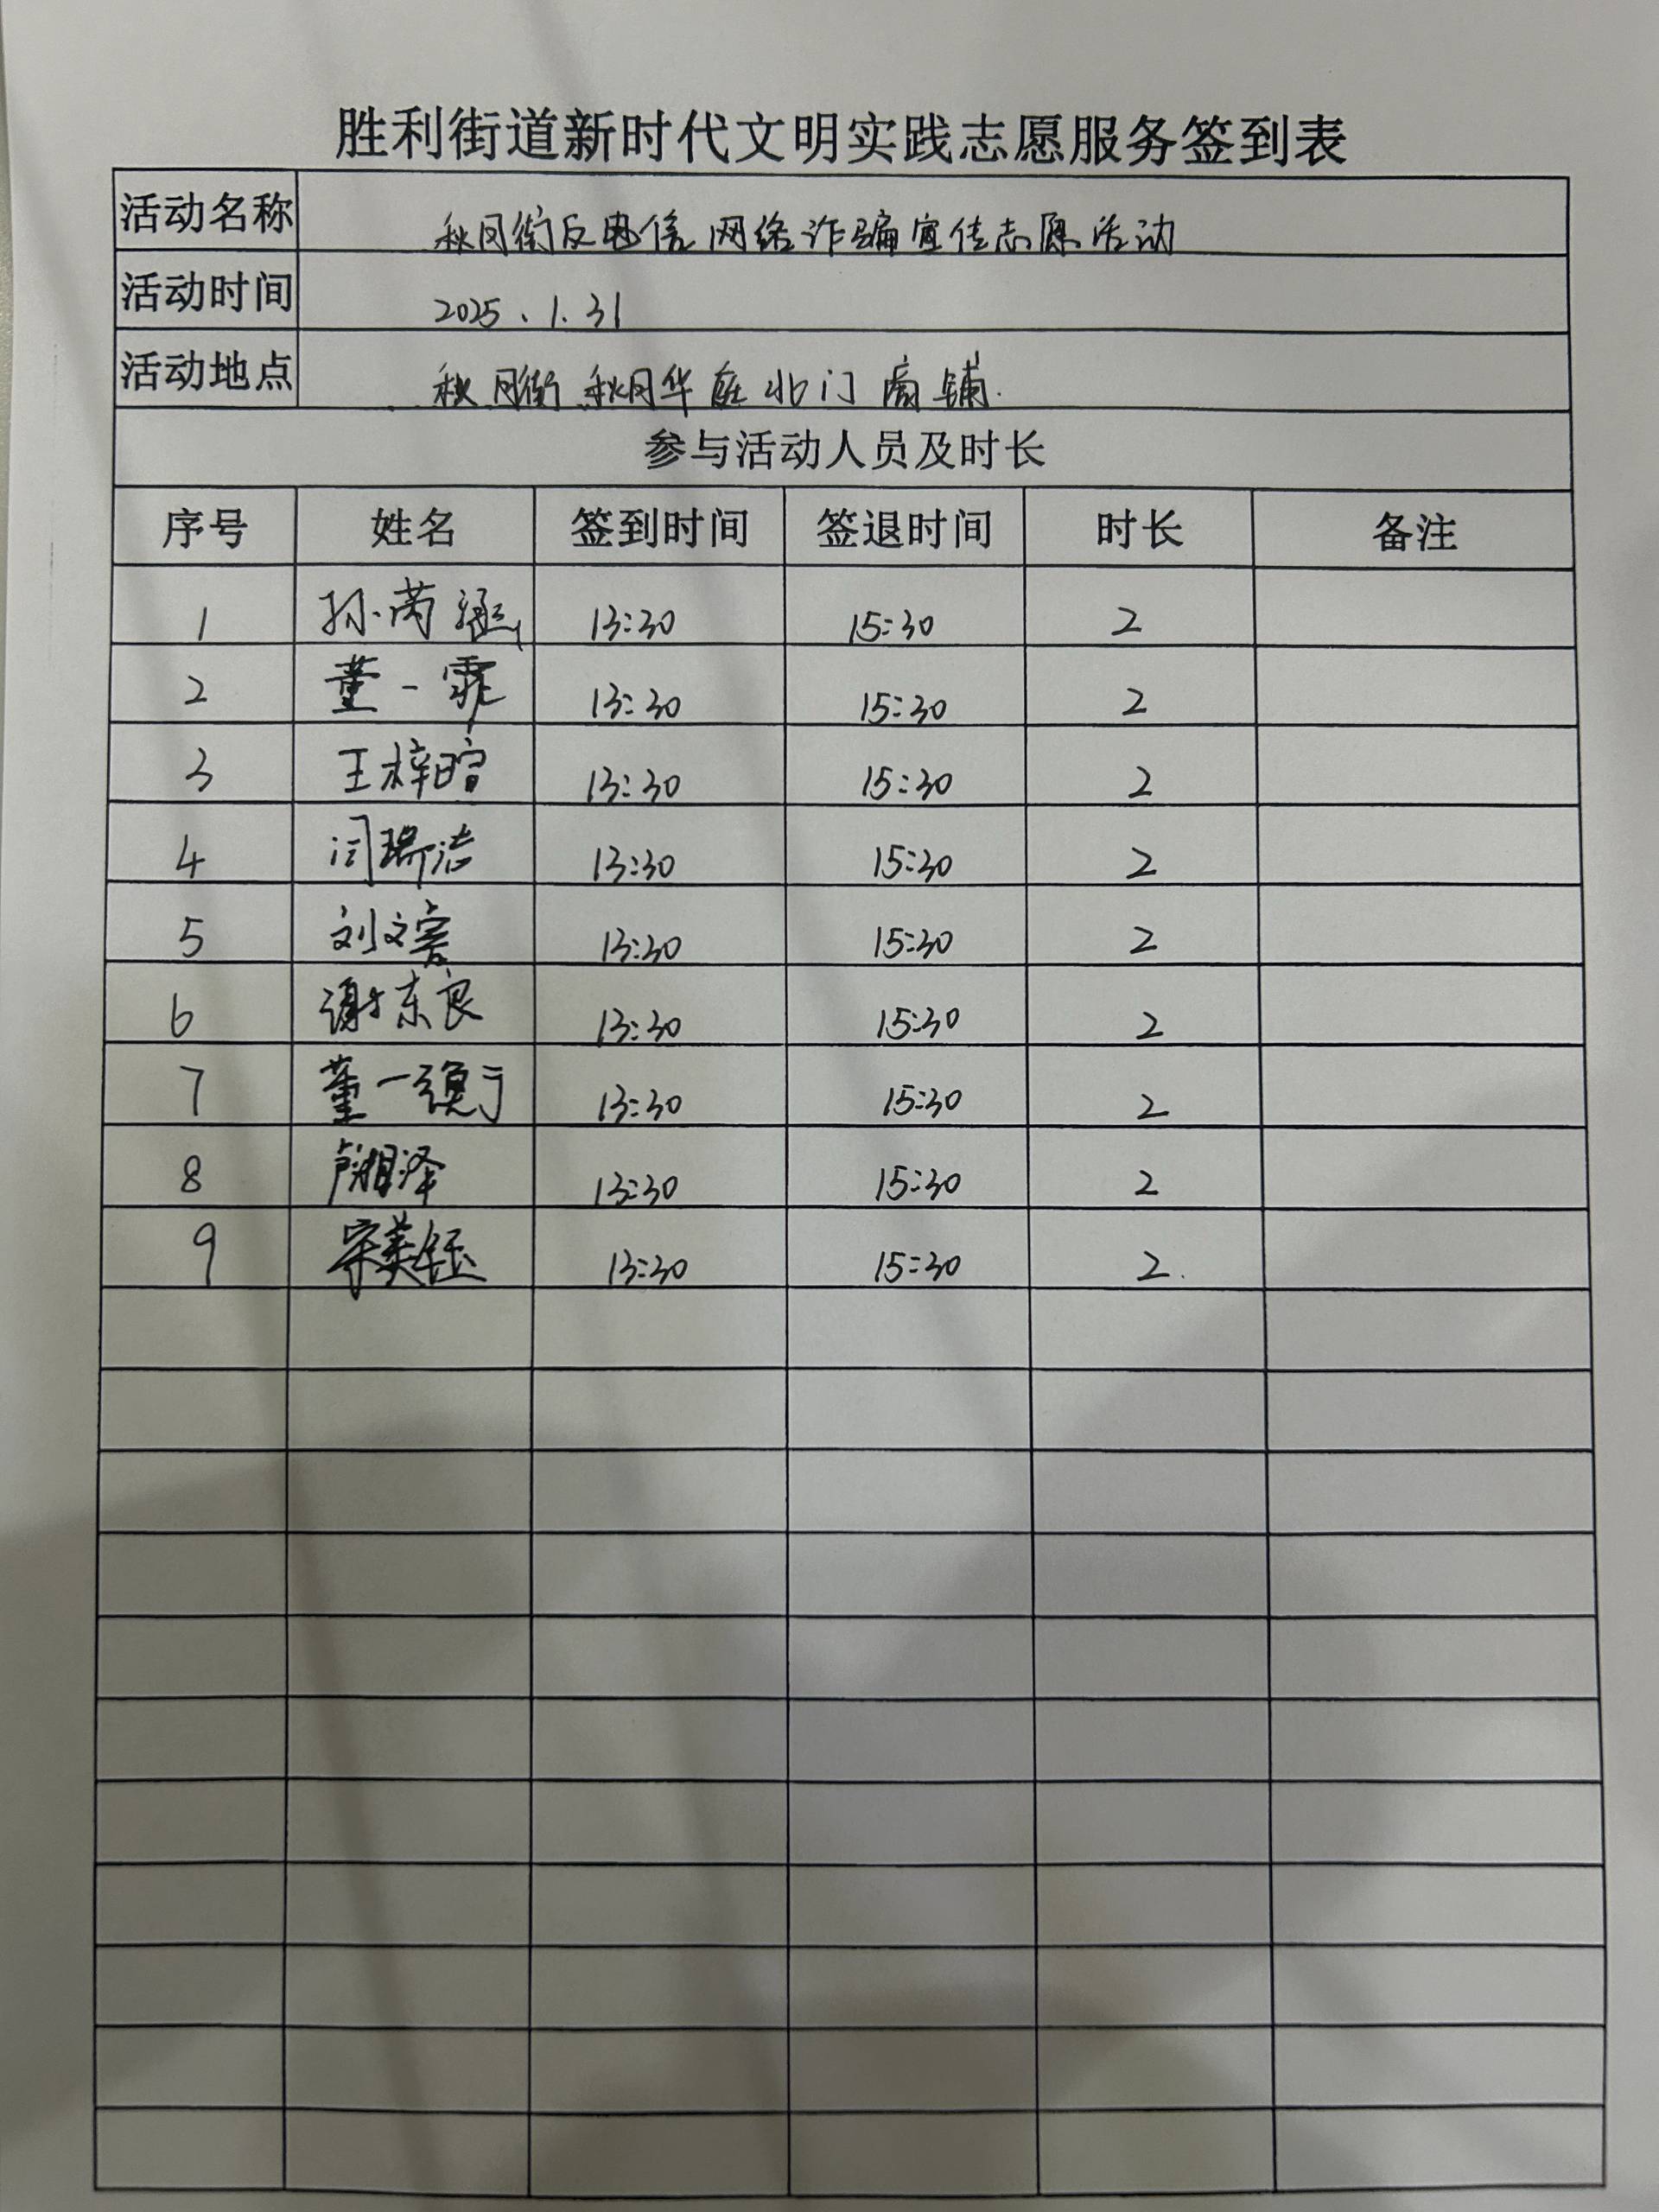 胜利街道新时代文明实践志愿服务签到表
活动名称 秋月街反电信网络诈骗宣传志愿活动
活动时间 2025.1.31
活动地点 秋月街秋月华庭北门商铺.
参与活动人员及时长
序号 姓名 签到时间 签退时间 时长 备注
1 孙芮涵 13:30 15:30 2
2 董一霏 13:30 15:30 2
3 王梓暄 13:30 15:30 2
4 闫瑞洁 13:30 15:30 2
5 刘文 13:30 15:30 2
6 谢东良 13:30 15:30 2
7 董一 13:30 15:30 2
8 卢湘泽 13:30 15:30 2
9 宋美钰 13:30 15:30 2.